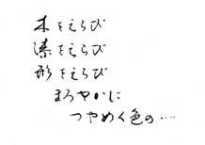 木をえらび
漆をえらび
形をえらび
まろやかに
つやめく色の…